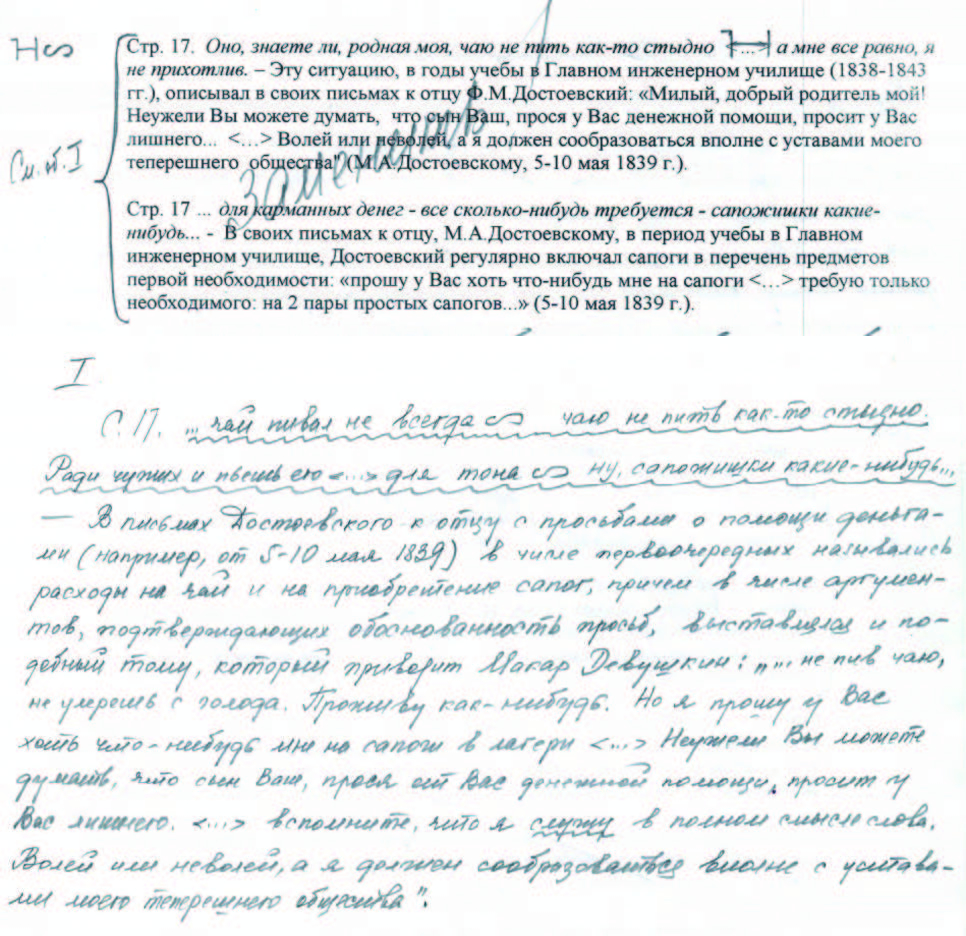 Нео
См. об. I
Стр. 17. Оно, знаете ли, родная моя, чаю не пить как-то стыдно <...> а мне все равно, я
не прихотлив. – Эту ситуацию, в годы учебы в Главном инженерном училище (1838-1843
гг.), описывал в своих письмах к отцу Ф.М.Достоевский: «Милый, добрый родитель мой!
Неужели Вы можете думать, что сын Ваш, прося у Вас денежной помощи, просит у Вас
лишнего... <...> Волей или неволей, а я должен сообразоваться вполне с уставами моего
теперешнего общества" (М.А.Достоевскому, 5-10 мая 1839 г.).
Заменить
Стр. 17 ... для карманных денег - все сколько-нибудь требуется - сапожишки какие-
нибудь... - В своих письмах к отцу, М.А.Достоевскому, в период учебы в Главном
инженерном училище, Достоевский регулярно включал сапоги в перечень предметов
первой необходимости: «прошу у Вас хоть что-нибудь мне на сапоги <...> требую только
необходимого: на 2 пары простых сапогов...» (5-10 мая 1839 г.).
I
С. 17. ...чай пивал не всегда ∽ чаю не пить как-то стыдно.
Ради чужих и пьешь его <...> для тона ∽ ну, сапожишки какие-нибудь...
— В письмах Достоевского к отцу с просьбами о помощи деньга-
ми (например, от 5-10 мая 1839) в числе первоочередных назывались
расходы на чай и на приобретение сапог, причем в числе аргумен-
тов, подтверждающих обоснованность просьб, выставлялся и по-
добный тому, который приводит Макар Девушкин: „... не пив чаю,
не умрешь с голода. Проживу как-нибудь. Но я прошу у Вас
хоть что-нибудь мне на сапоги в лагери <...> Неужели Вы можете
думать, что сын Ваш, прося от Вас денежной помощи, просит у
Вас лишнего. <...> вспомните, что я служу в полном смысле слова.
Волей или неволей, а я должен сообразоваться вполне с устава-
ми моего теперешнего общества".